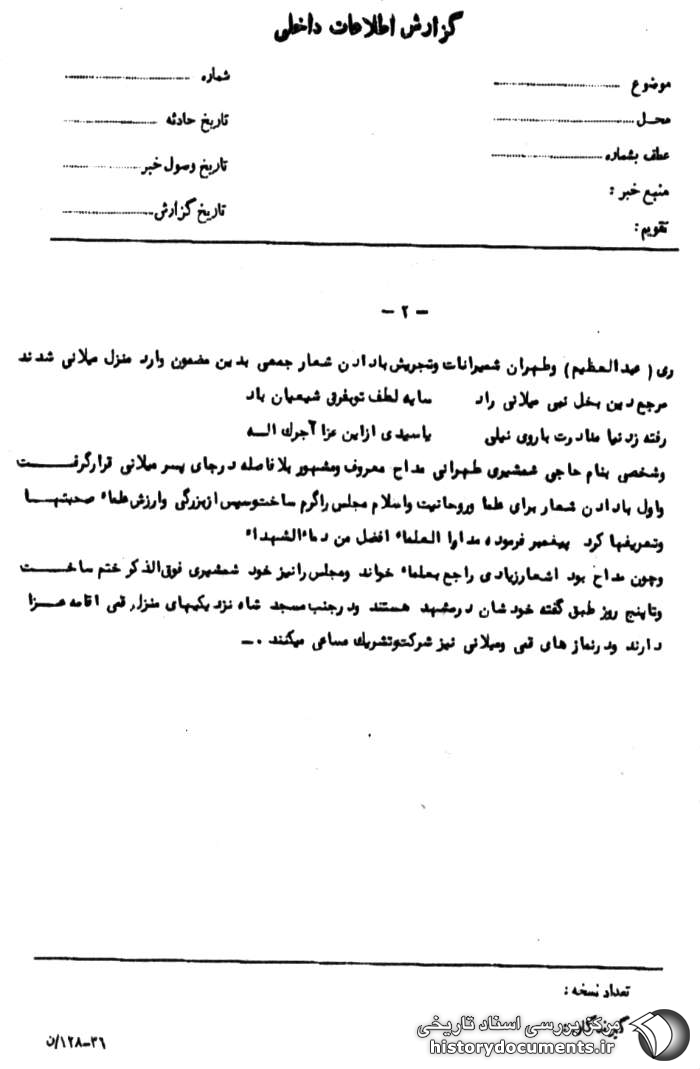 گزارش اطلاعات داخلی
موضوع
شماره
محل
تاریخ حادثه
عطف بشماره
تاریخ وصول خبر
منبع خبر :
تاریخ گزارش
تقویم :
- ۲ -
ری ( عبدالعظیم ) وطهران شمیرانات وتجریش بادادن شعار جمعی بدین مضمون وارد منزل میلانی شدند
مرجع دین بخل نبی میلانی راد سایه لطف توبفرق شیعیان باد
رفته زدنیا مادرت باروی نیلی یاسیدی ازاین عزا آجرك اله
وشخصی بنام حاجی شمشیری طهرانی مداح معروف ومشهور بلافاصله درجای پسر میلانی قرارگرفت
واول بادادن شعار برای علما وروحانیت واسلام مجلس راگرم ساخت وسپس ازبزرگی وارزش علماء صحبتها
وتعریفها کرد پیغمبر فرموده مدادا العلماء افضل من دماء الشهداء
وچون مداح بود اشعارزیادی راجع بعلماء خواند ومجلس رانیز خود شمشیری فوق الذکر ختم ساخت
وتاپنج روز طبق گفته خودشان درمشهد هستند ودرجنب مسجد شاه نزدیکیهای منزل قمی اقامه عزا
دارند ودرنماز های قمی ومیلانی نیز شرکت وتشریك مساعی میکنند .ـ
تعداد نسخه :
گیرندگان
۳۶-۱۲۸/ن
مرکز بررسی اسناد تاریخی
historydocuments.ir